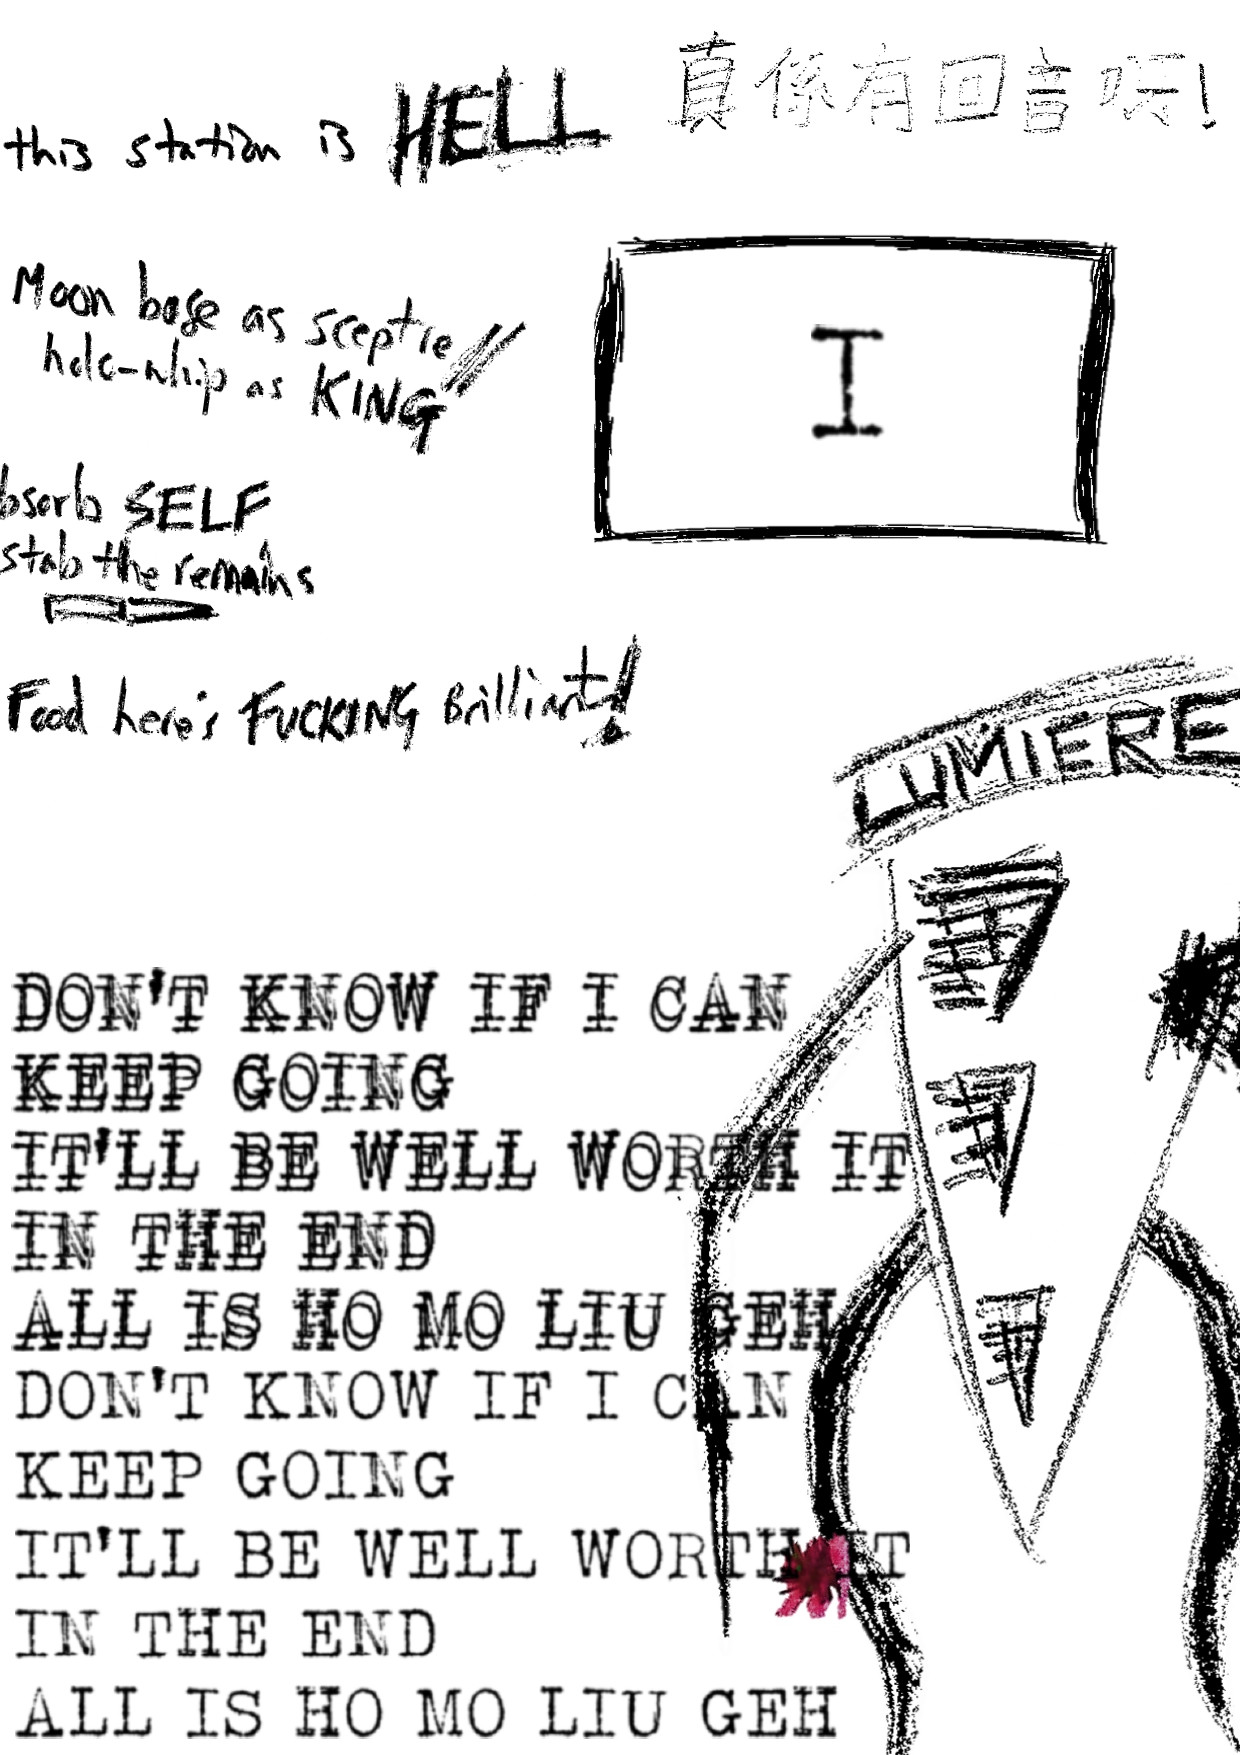 this station is HELL
真係有回音呀!
Moon base as sceptre
holo-whip as KING
I
bsorb SELF
stab the remains
Food here's FUCKING Brilliant!
LUMIERE
DON'T KNOW IF I CAN
KEEP GOING
IT'LL BE WELL WORTH IT
IN THE END
ALL IS HO MO LIU GEH
DON'T KNOW IF I CAN
KEEP GOING
IT'LL BE WELL WORTH IT
IN THE END
ALL IS HO MO LIU GEH